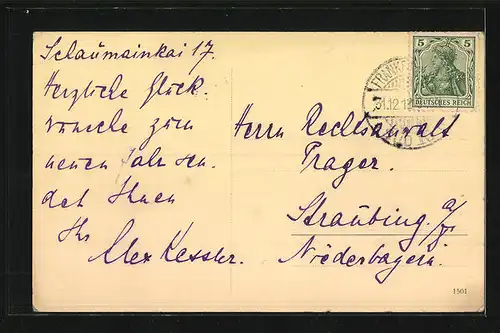 Schaumainkai 17.
Herzliche Glück-
wünsche zum
neuen Jahr sen-
det Ihnen
Ihr
Alex Kessler.
Herrn Rechtsanwalt
Trager.
Straubing.
Niederbayern.
5 5
DEUTSCHES REICH
31.12.1
1501